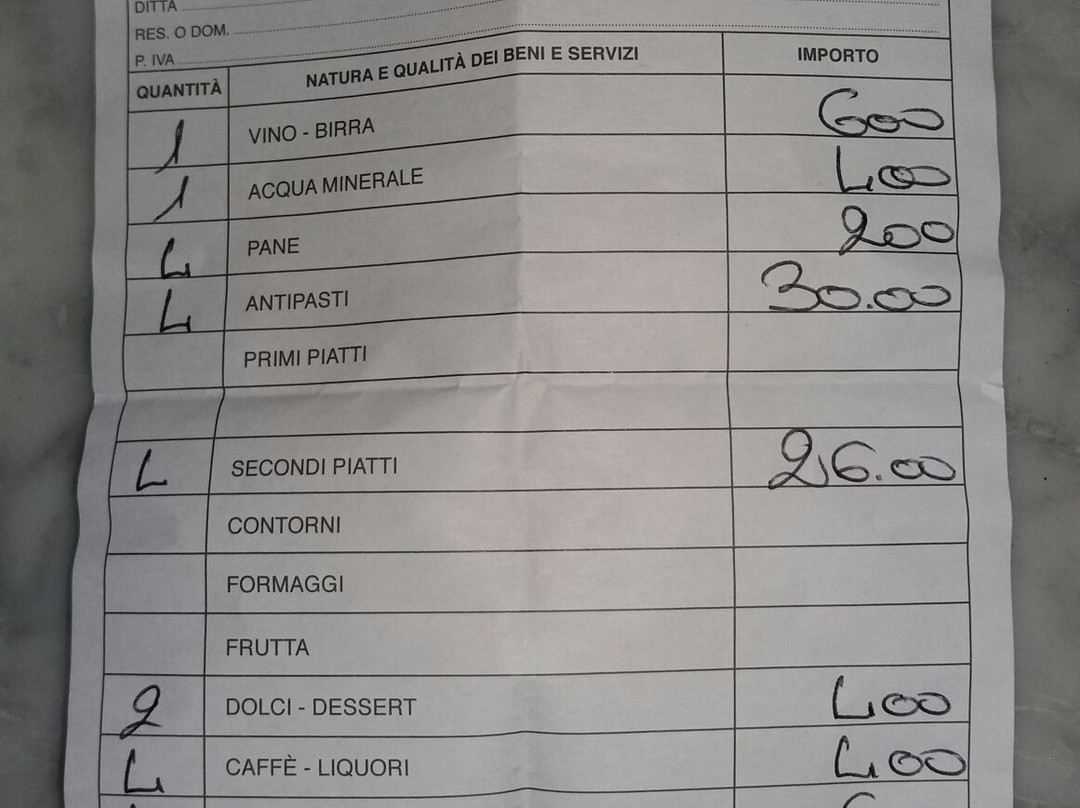 DITTA
RES. O DOM.
P. IVA
QUANTITÀ NATURA E QUALITÀ DEI BENI E SERVIZI IMPORTO
1 VINO - BIRRA 600
1 ACQUA MINERALE 400
4 PANE 200
4 ANTIPASTI 30.00
PRIMI PIATTI
4 SECONDI PIATTI 26.00
CONTORNI
FORMAGGI
FRUTTA
2 DOLCI - DESSERT 400
4 CAFFÈ - LIQUORI 400